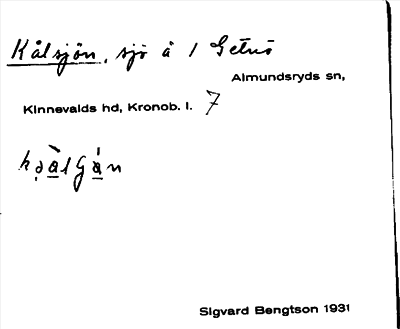 Kålsjön, sjö å 1 Getnö
Almundsryds sn,
Kinnevalds hd, Kronob. l. 7
Sigvard Bengtson 1931